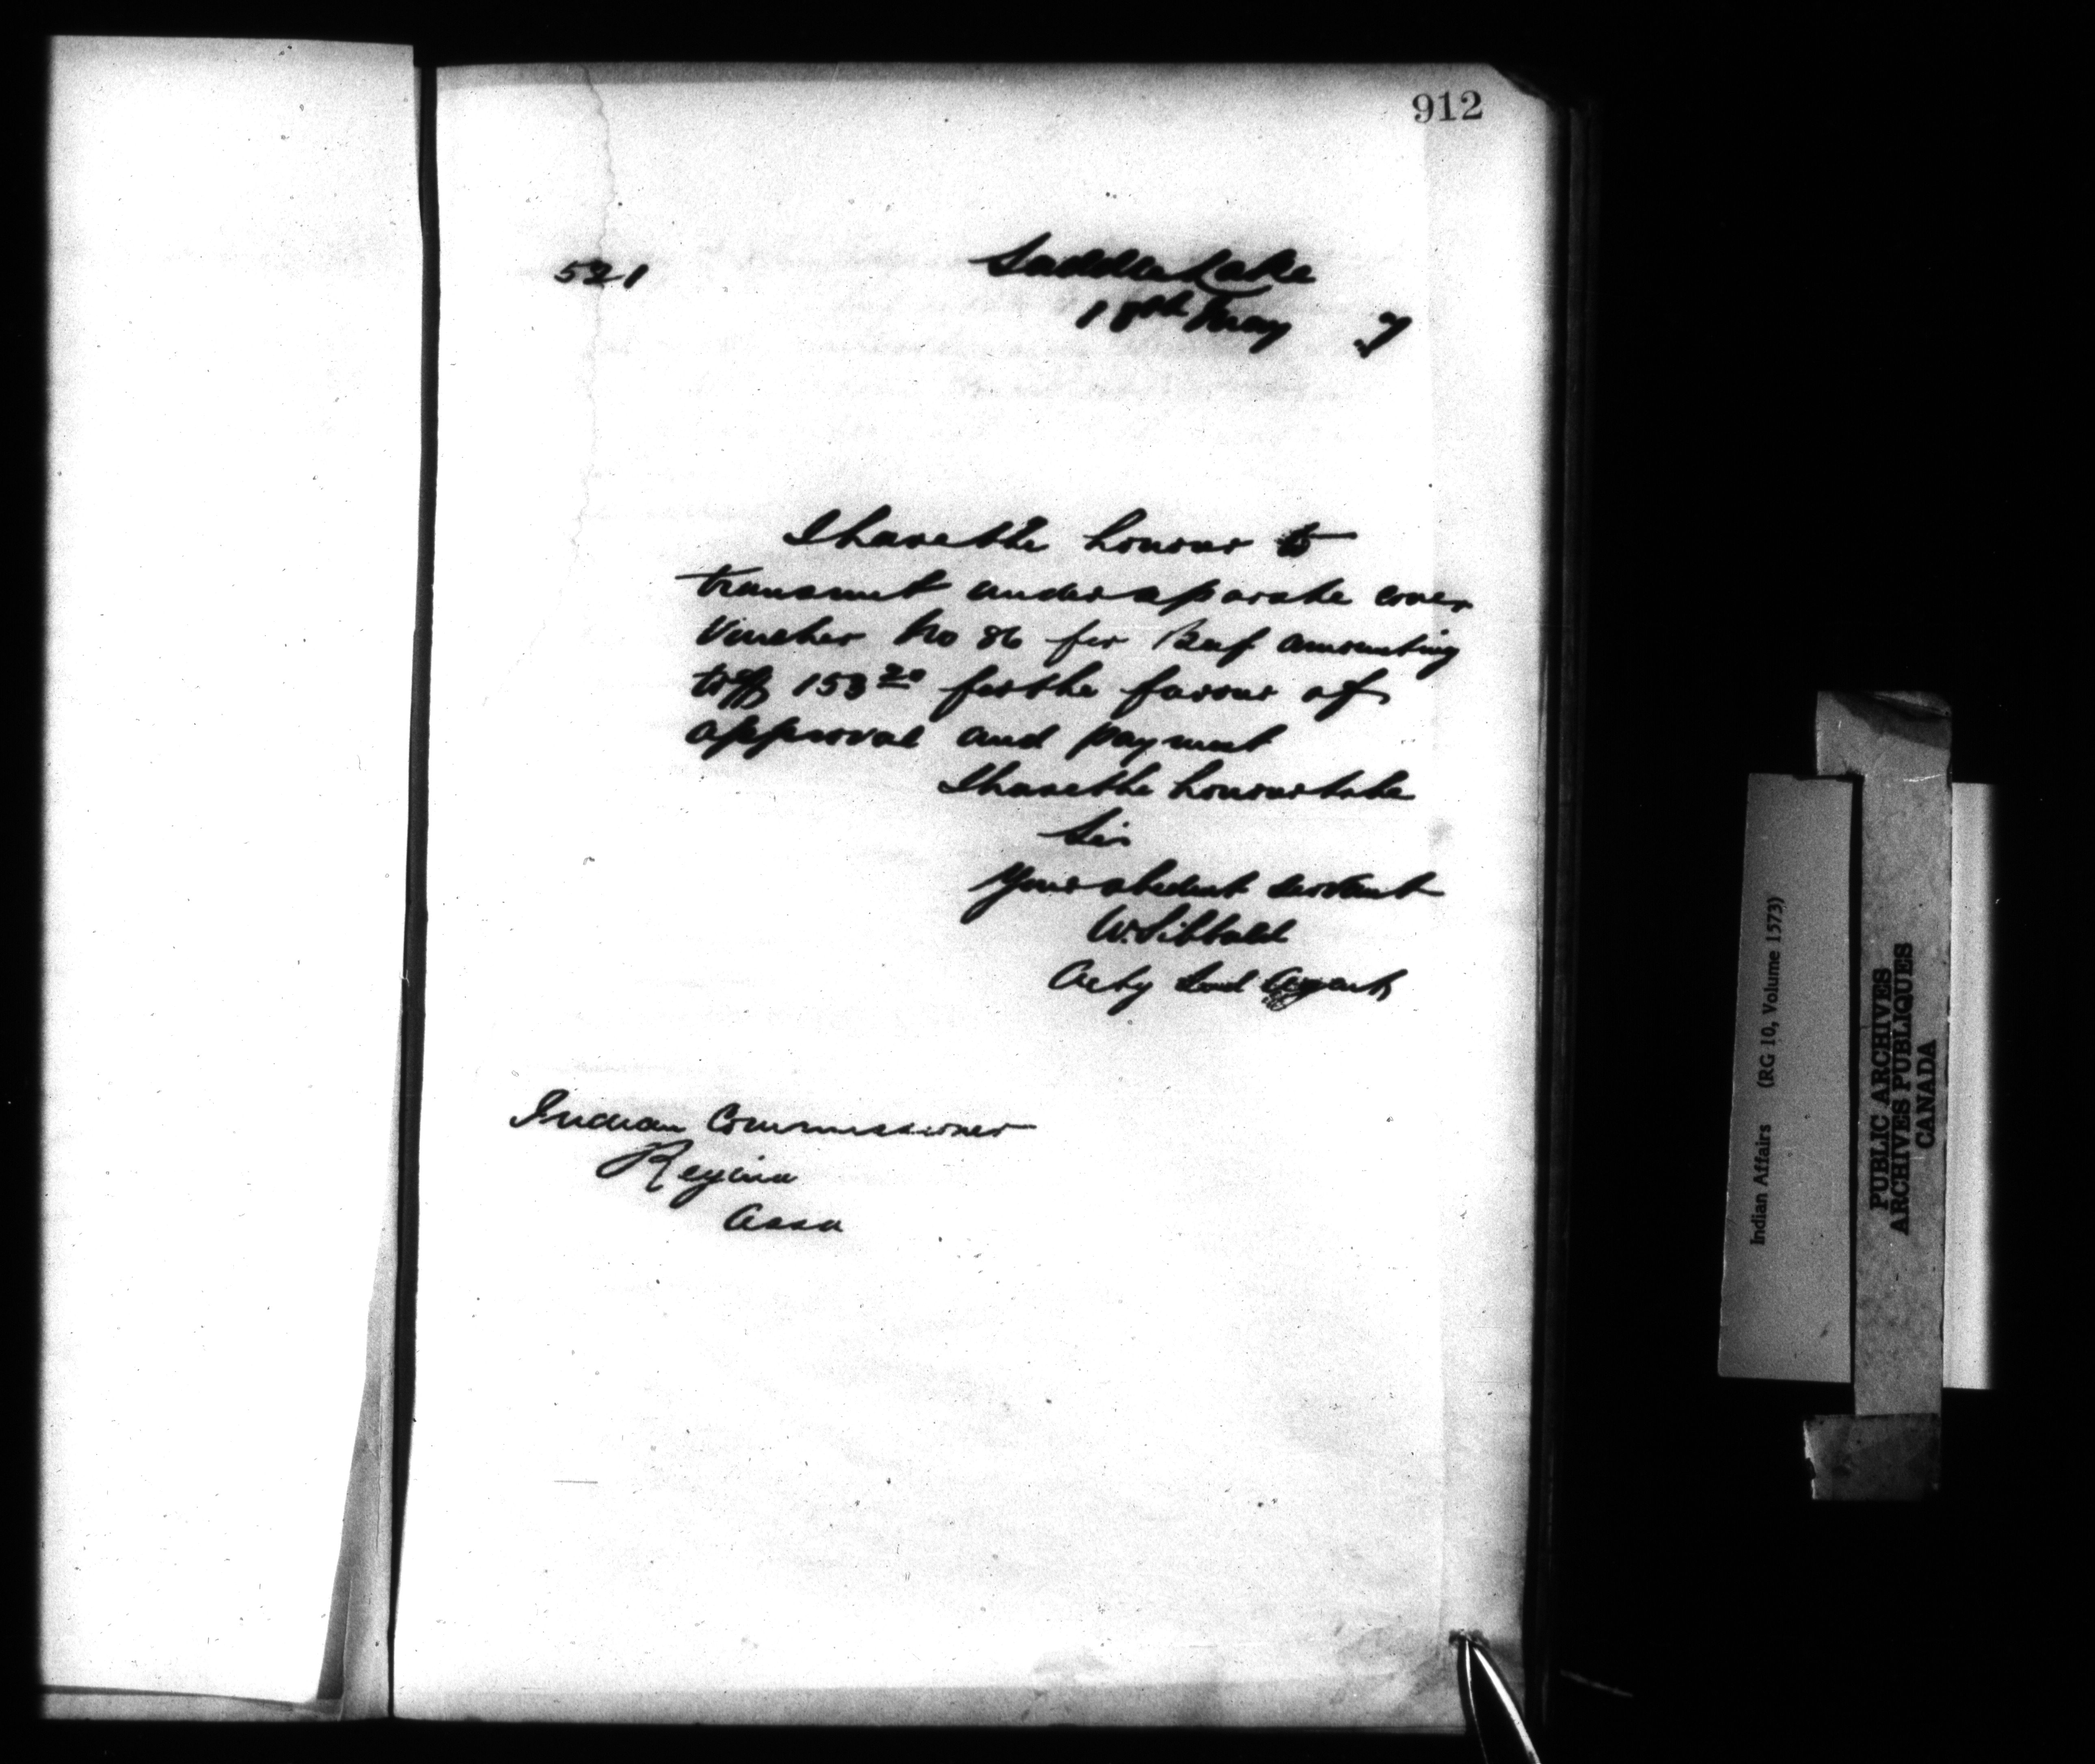 912
521
Saddle Lake
18th May 7
I have the honour to
transmit under separate cover
Voucher No 86 for Beef amounting
to $ 153 20 for the favour of
approval and payment
I have the honour to be
Sir
Your obedient servant
W. Sibbald
Actg Ind Agent
Indian Commissioner
Regina
Assa
Indian Affairs (RG 10, Volume 1573)
PUBLIC ARCHIVES
ARCHIVES PUBLIQUES
CANADA